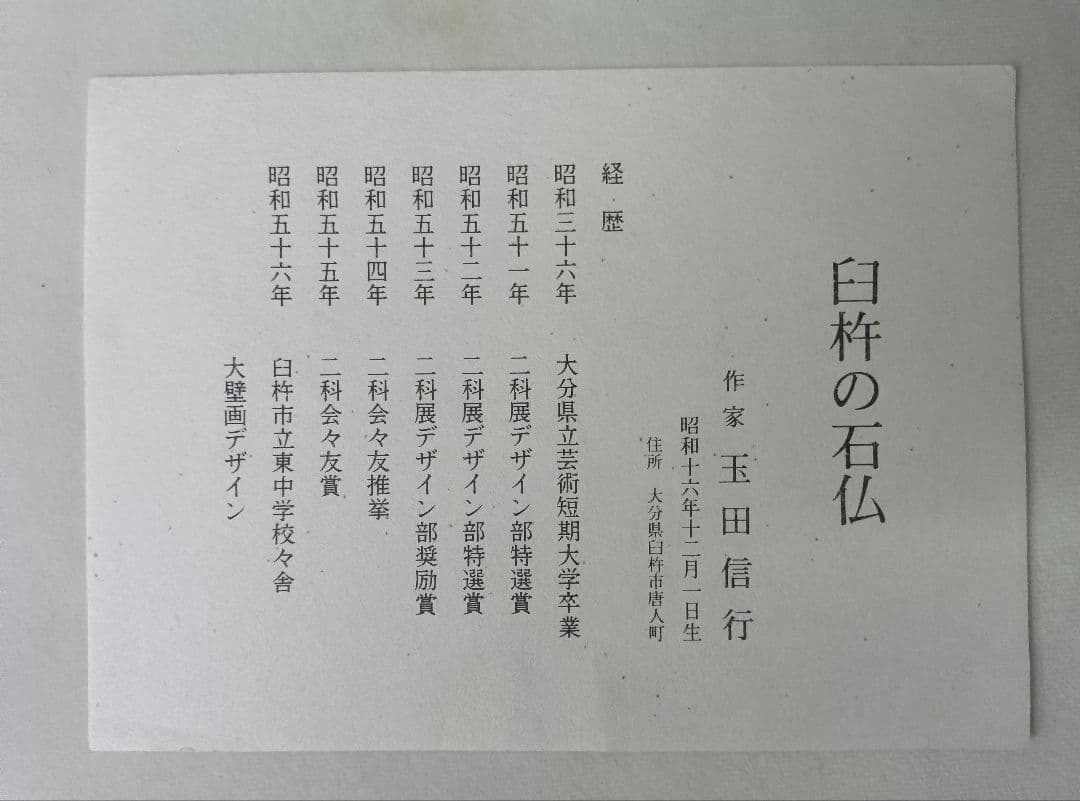 臼杵の石仏
作家 玉田信行
昭和十六年十二月一日生
住所 大分県臼杵市唐人町
経歴
昭和三十六年 大分県立芸術短期大学卒業
昭和五十一年 二科展デザイン部特選賞
昭和五十二年 二科展デザイン部特選賞
昭和五十三年 二科展デザイン部奨励賞
昭和五十四年 二科会々友推挙
昭和五十五年 二科会々友賞
昭和五十六年 臼杵市立東中学校々舎
大壁画デザイン